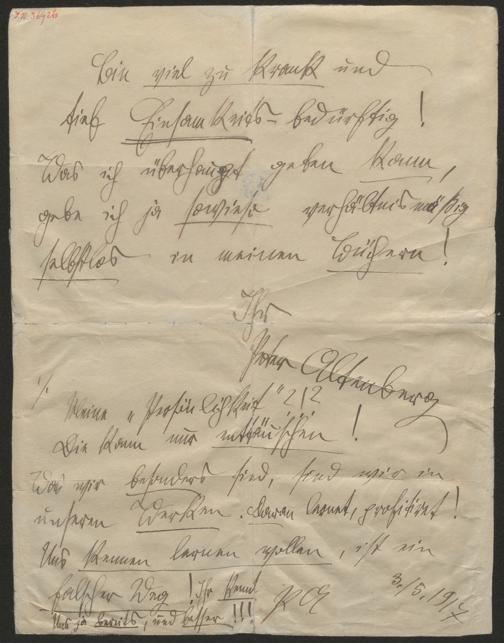 Bin viel zu krank und
tief Einsamkeits-bedürftig!
Was ich überhaupt geben kann,
gebe ich ja sowieso verhältnismäßig
selbstlos in meinen Büchern!
Ihr
Peter Altenberg
%
Meine „Persönlichkeit" ?!?
Die kann nur enttäuschen!
Was wir besonders sind, sind wir in
unseren Werken. Daran lernet, profitiret!
Uns kennen lernen wollen, ist ein
falscher Weg! Ihr kennt
uns ja bereits, und besser!!!
PA 3./5. 1917